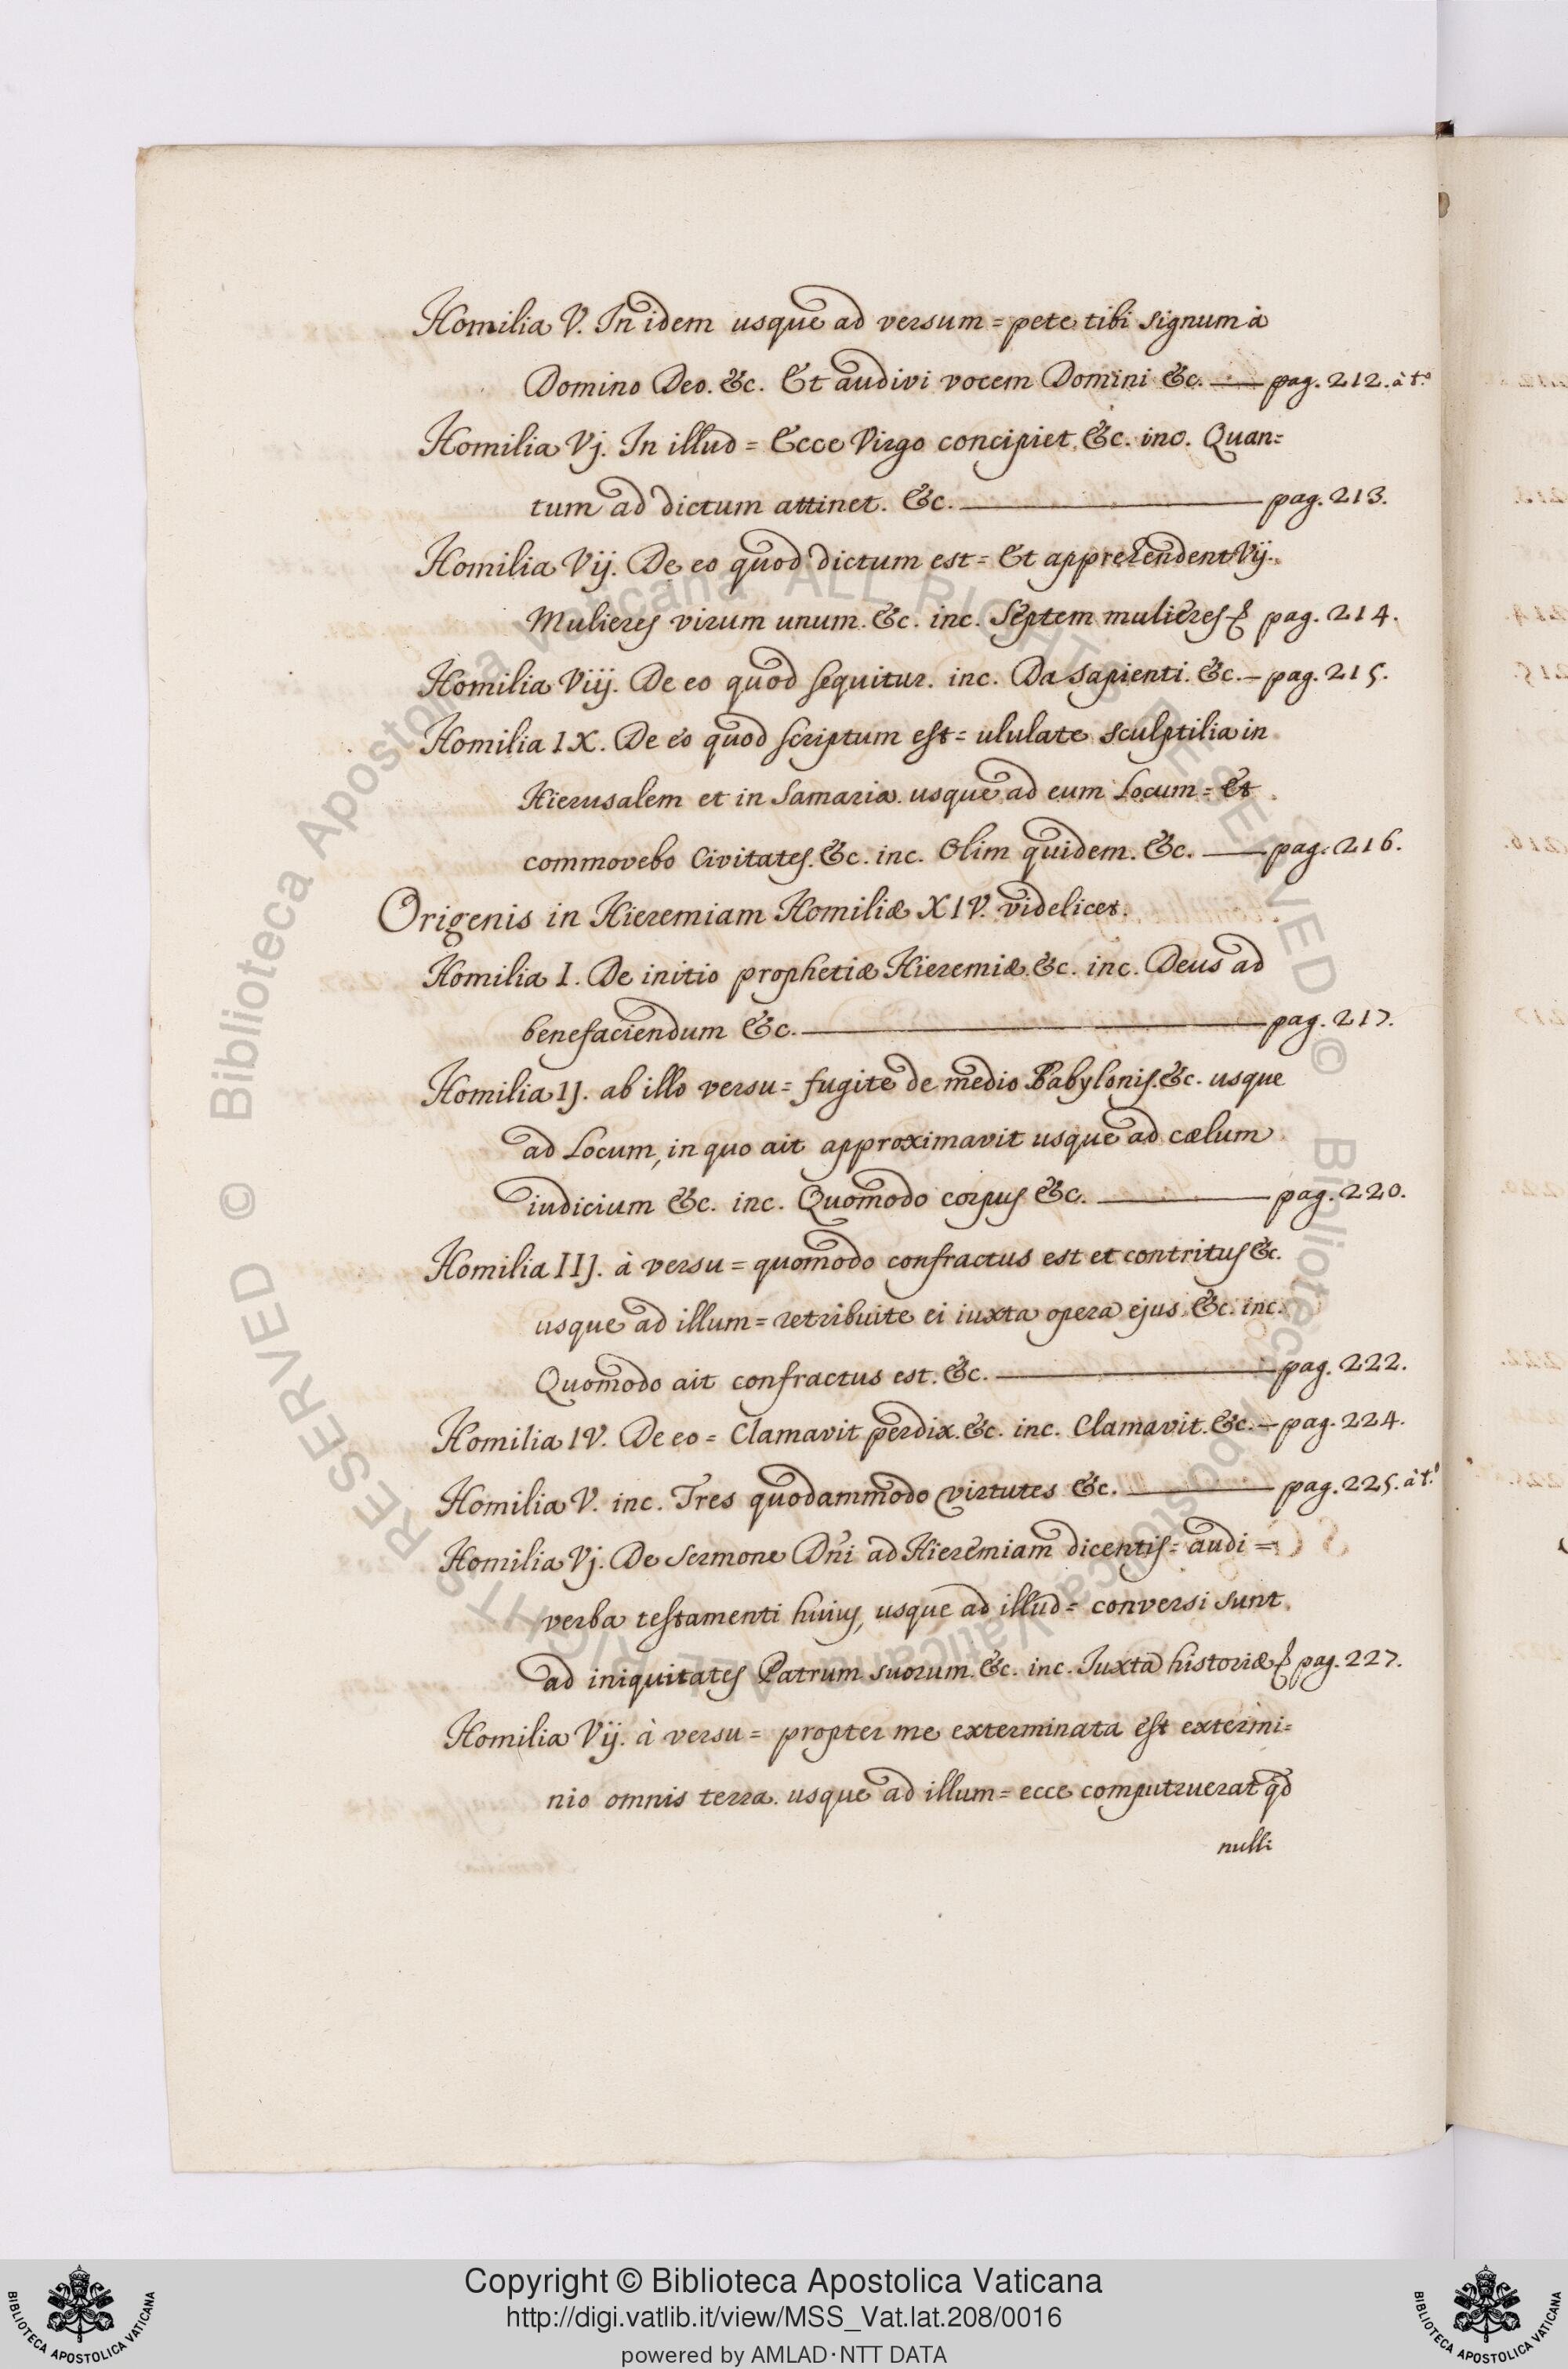 Homilia V. In idem usque ad versum = pete tibi signum à
Domino Deo. &c. Et audivi vocem Domini &c. — pag. 212. à t.º
Homilia Vj. In illud = Ecce Virgo concipiet &c. inc. Quan=
tum ad dictum attinet. &c. — pag. 213.
Homilia Vij. De eo quod dictum est = Et apprehendent Vij.
Mulieres virum unum. &c. inc. Septem mulieres pag. 214.
Homilia Viij. De eo quod sequitur. inc. Da sapienti. &c. — pag. 215.
Homilia IX. De eo quod scriptum est = ululate sculptilia in
Hierusalem et in Samaria. usque ad eum Locum = Et
commovebo Civitates. &c. inc. Olim quidem. &c. — pag. 216.
Origenis in Hieremiam Homiliæ XIV. videlicet.
Homilia I. De initio prophetiæ Hieremiæ. &c. inc. Deus ad
benefaciendum &c. — pag. 217.
Homilia IJ. ab illo versu = fugite de medio Babylonis. &c. usque
ad Locum, in quo ait approximavit usque ad cælum
iudicium &c. inc. Quomodo corpus &c. — pag. 220.
Homilia IIJ. à versu = quomodo confractus est et contritus &c.
usque ad illum = retribuite ei iuxta opera ejus &c. inc.
Quomodo ait confractus est. &c. — pag. 222.
Homilia IV. De eo = Clamavit perdix. &c. inc. Clamavit. &c. — pag. 224.
Homilia V. inc. Tres quodammodo virtutes &c. — pag. 225. à t.º
Homilia Vj. De Sermone Dñi ad Hieremiam dicentis = audi =
verba testamenti huius, usque ad illud = conversi sunt
ad iniquitates Patrum suorum. &c. inc. Iuxta historiæ pag. 227.
Homilia Vij. à versu = propter me exterminata est extermi=
nio omnis terra. usque ad illum = ecce computruerat qd
nulli
Biblioteca Apostolica Vaticana ALL RIGHTS RESERVED ©
Copyright © Biblioteca Apostolica Vaticana
http://digi.vatlib.it/view/MSS_Vat.lat.208/0016
powered by AMLAD·NTT DATA
BIBLIOTECA APOSTOLICA VATICANA
BIBLIOTECA APOSTOLICA VATICANA